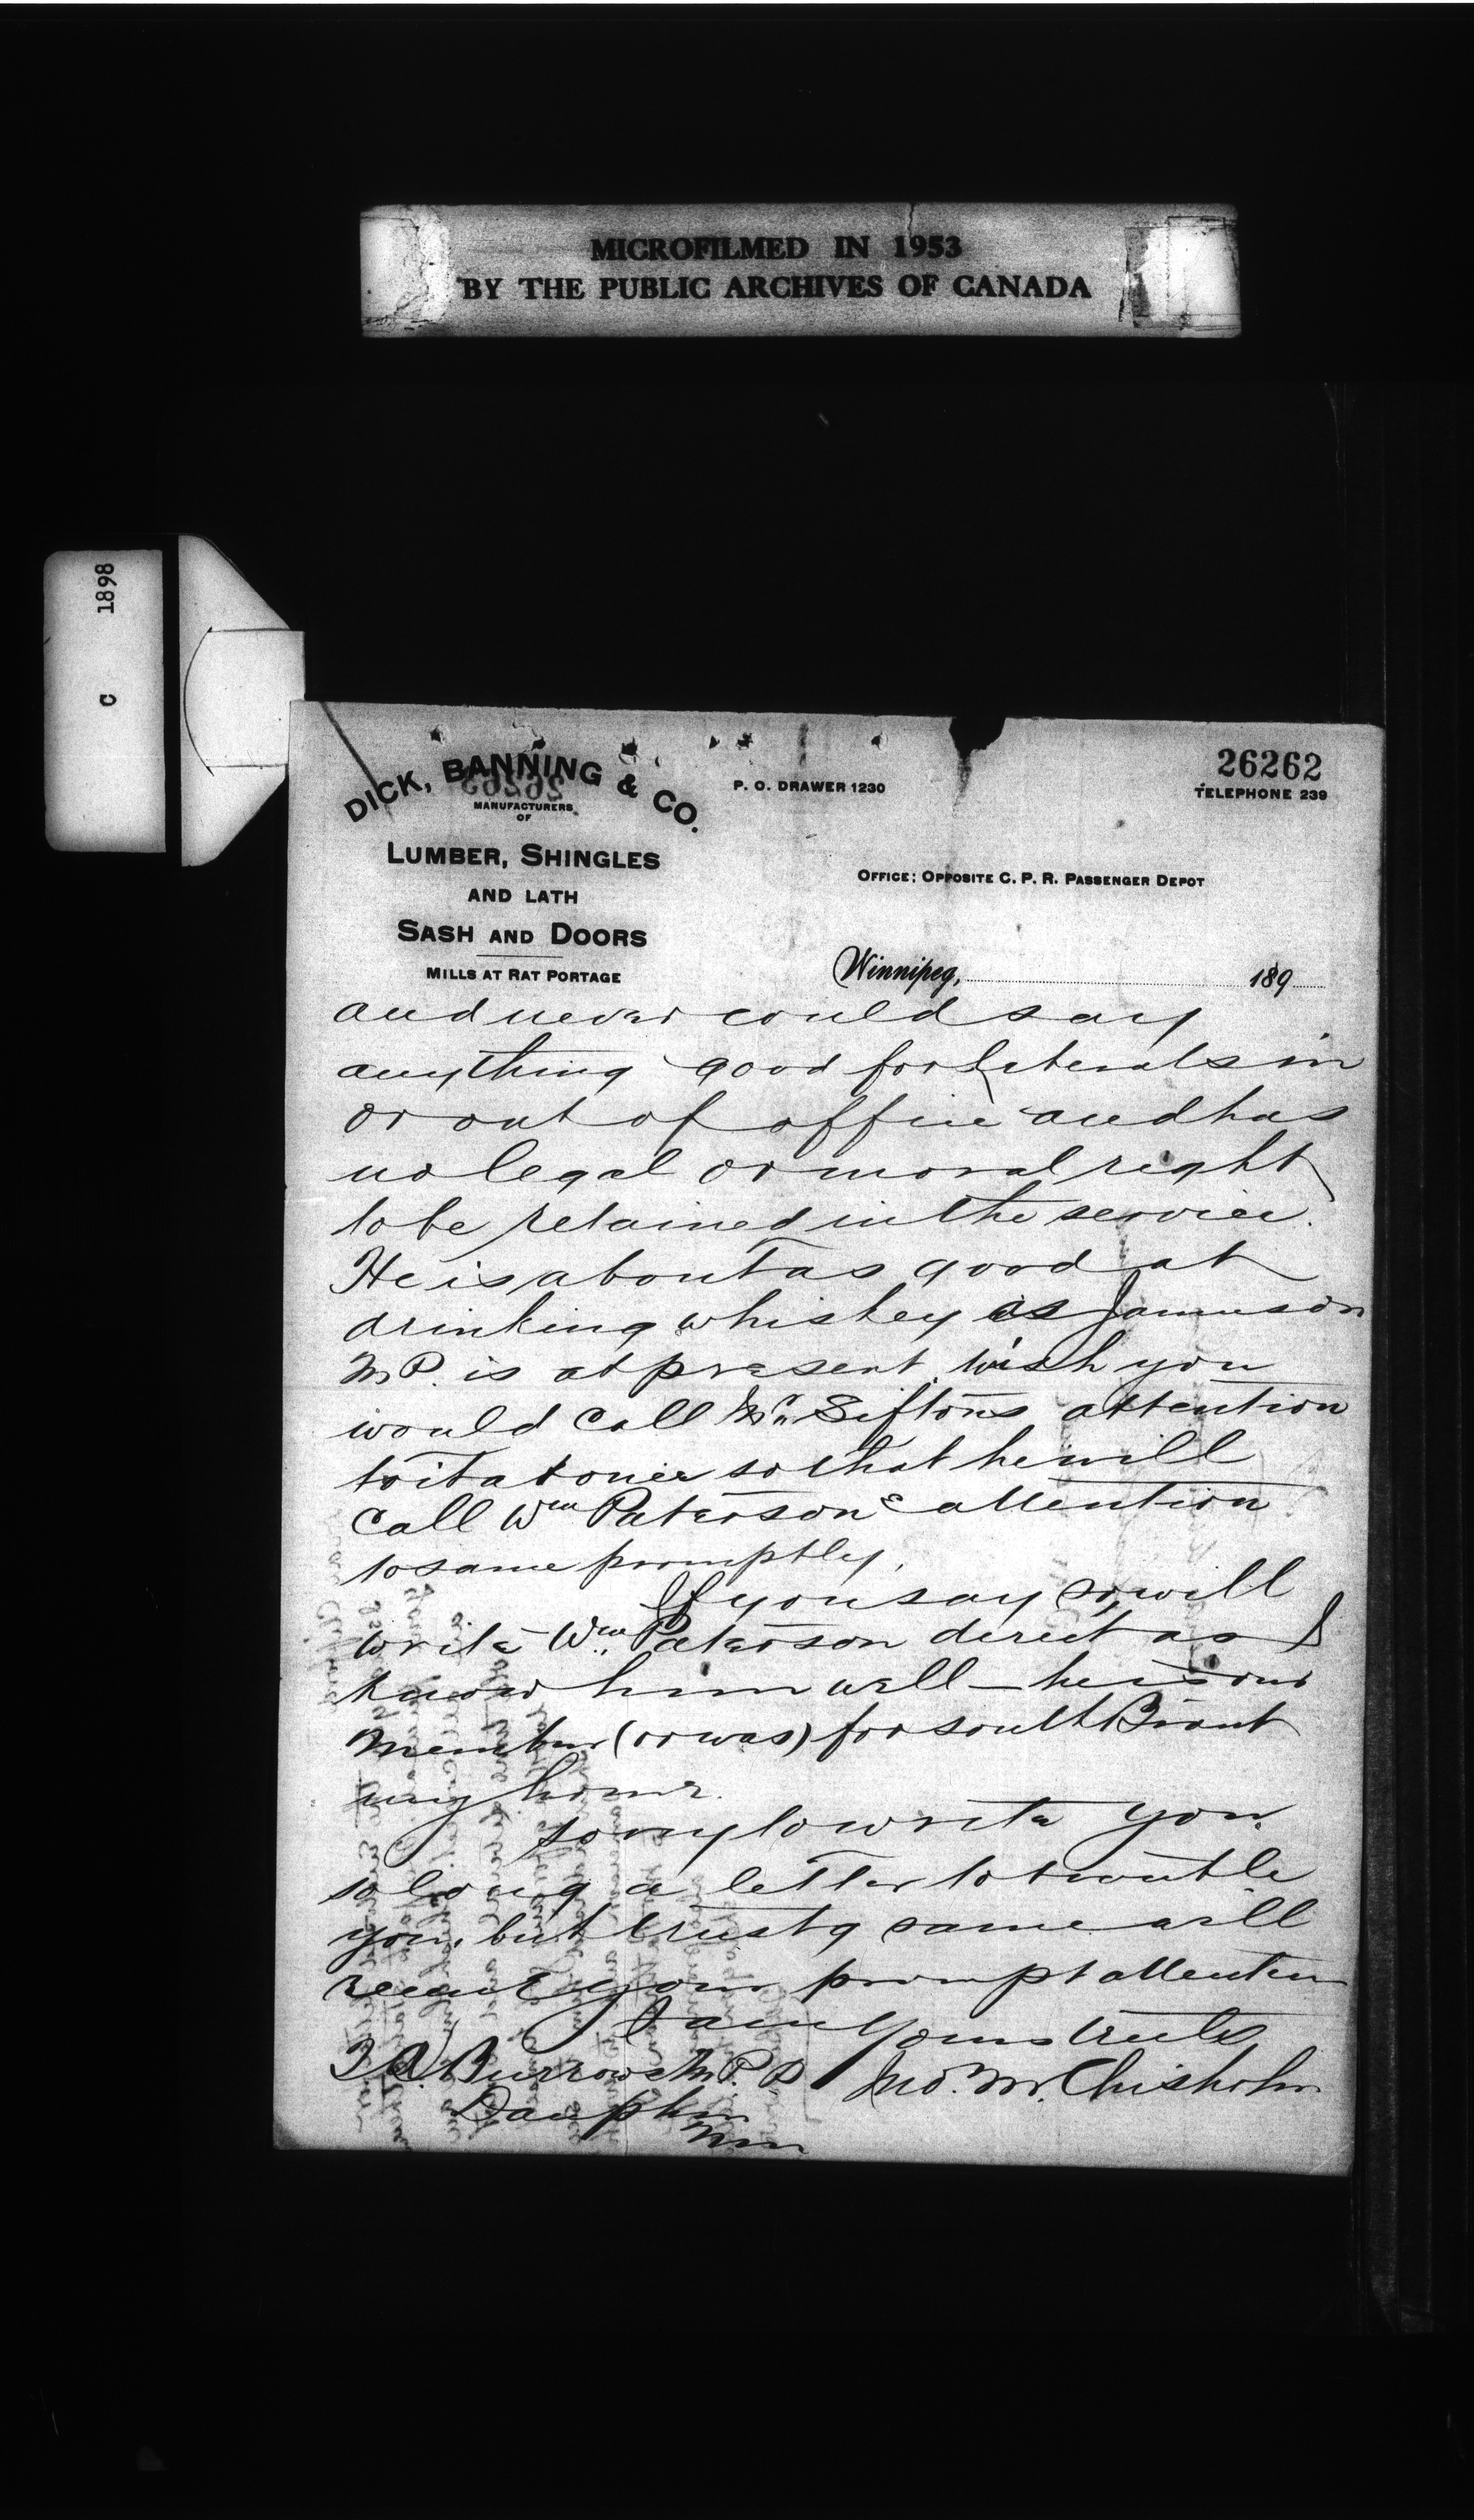 MICROFILMED IN 1953
BY THE PUBLIC ARCHIVES OF CANADA
C 1898
26262
DICK, BANNING & CO.
P. O. DRAWER 1230
TELEPHONE 239
MANUFACTURERS
OF
LUMBER, SHINGLES
AND LATH
OFFICE: OPPOSITE C. P. R. PASSENGER DEPOT
SASH AND DOORS
MILLS AT RAT PORTAGE
Winnipeg, 189
and never could say
anything good for Liberals in
or out of office and has
no legal or moral right
to be retained in the service.
He is about as good at
drinking whiskey as Jamieson
M.P. is at present. Wish you
would call Mr. Siftons attention
to it at once so that he will
call Wm Patersons attention
to same promptly.
If you say so, will
write Wm Paterson direct as I
know him well — he is our
Member (or was) for south Brant
my home.
Sorry to write you
so long a letter to trouble
you, but trustg same will
receive your prompt attention
I am Yours truly
T.A. Burrows M.P.P. Jno. M. Chisholm
Dauphin
Man